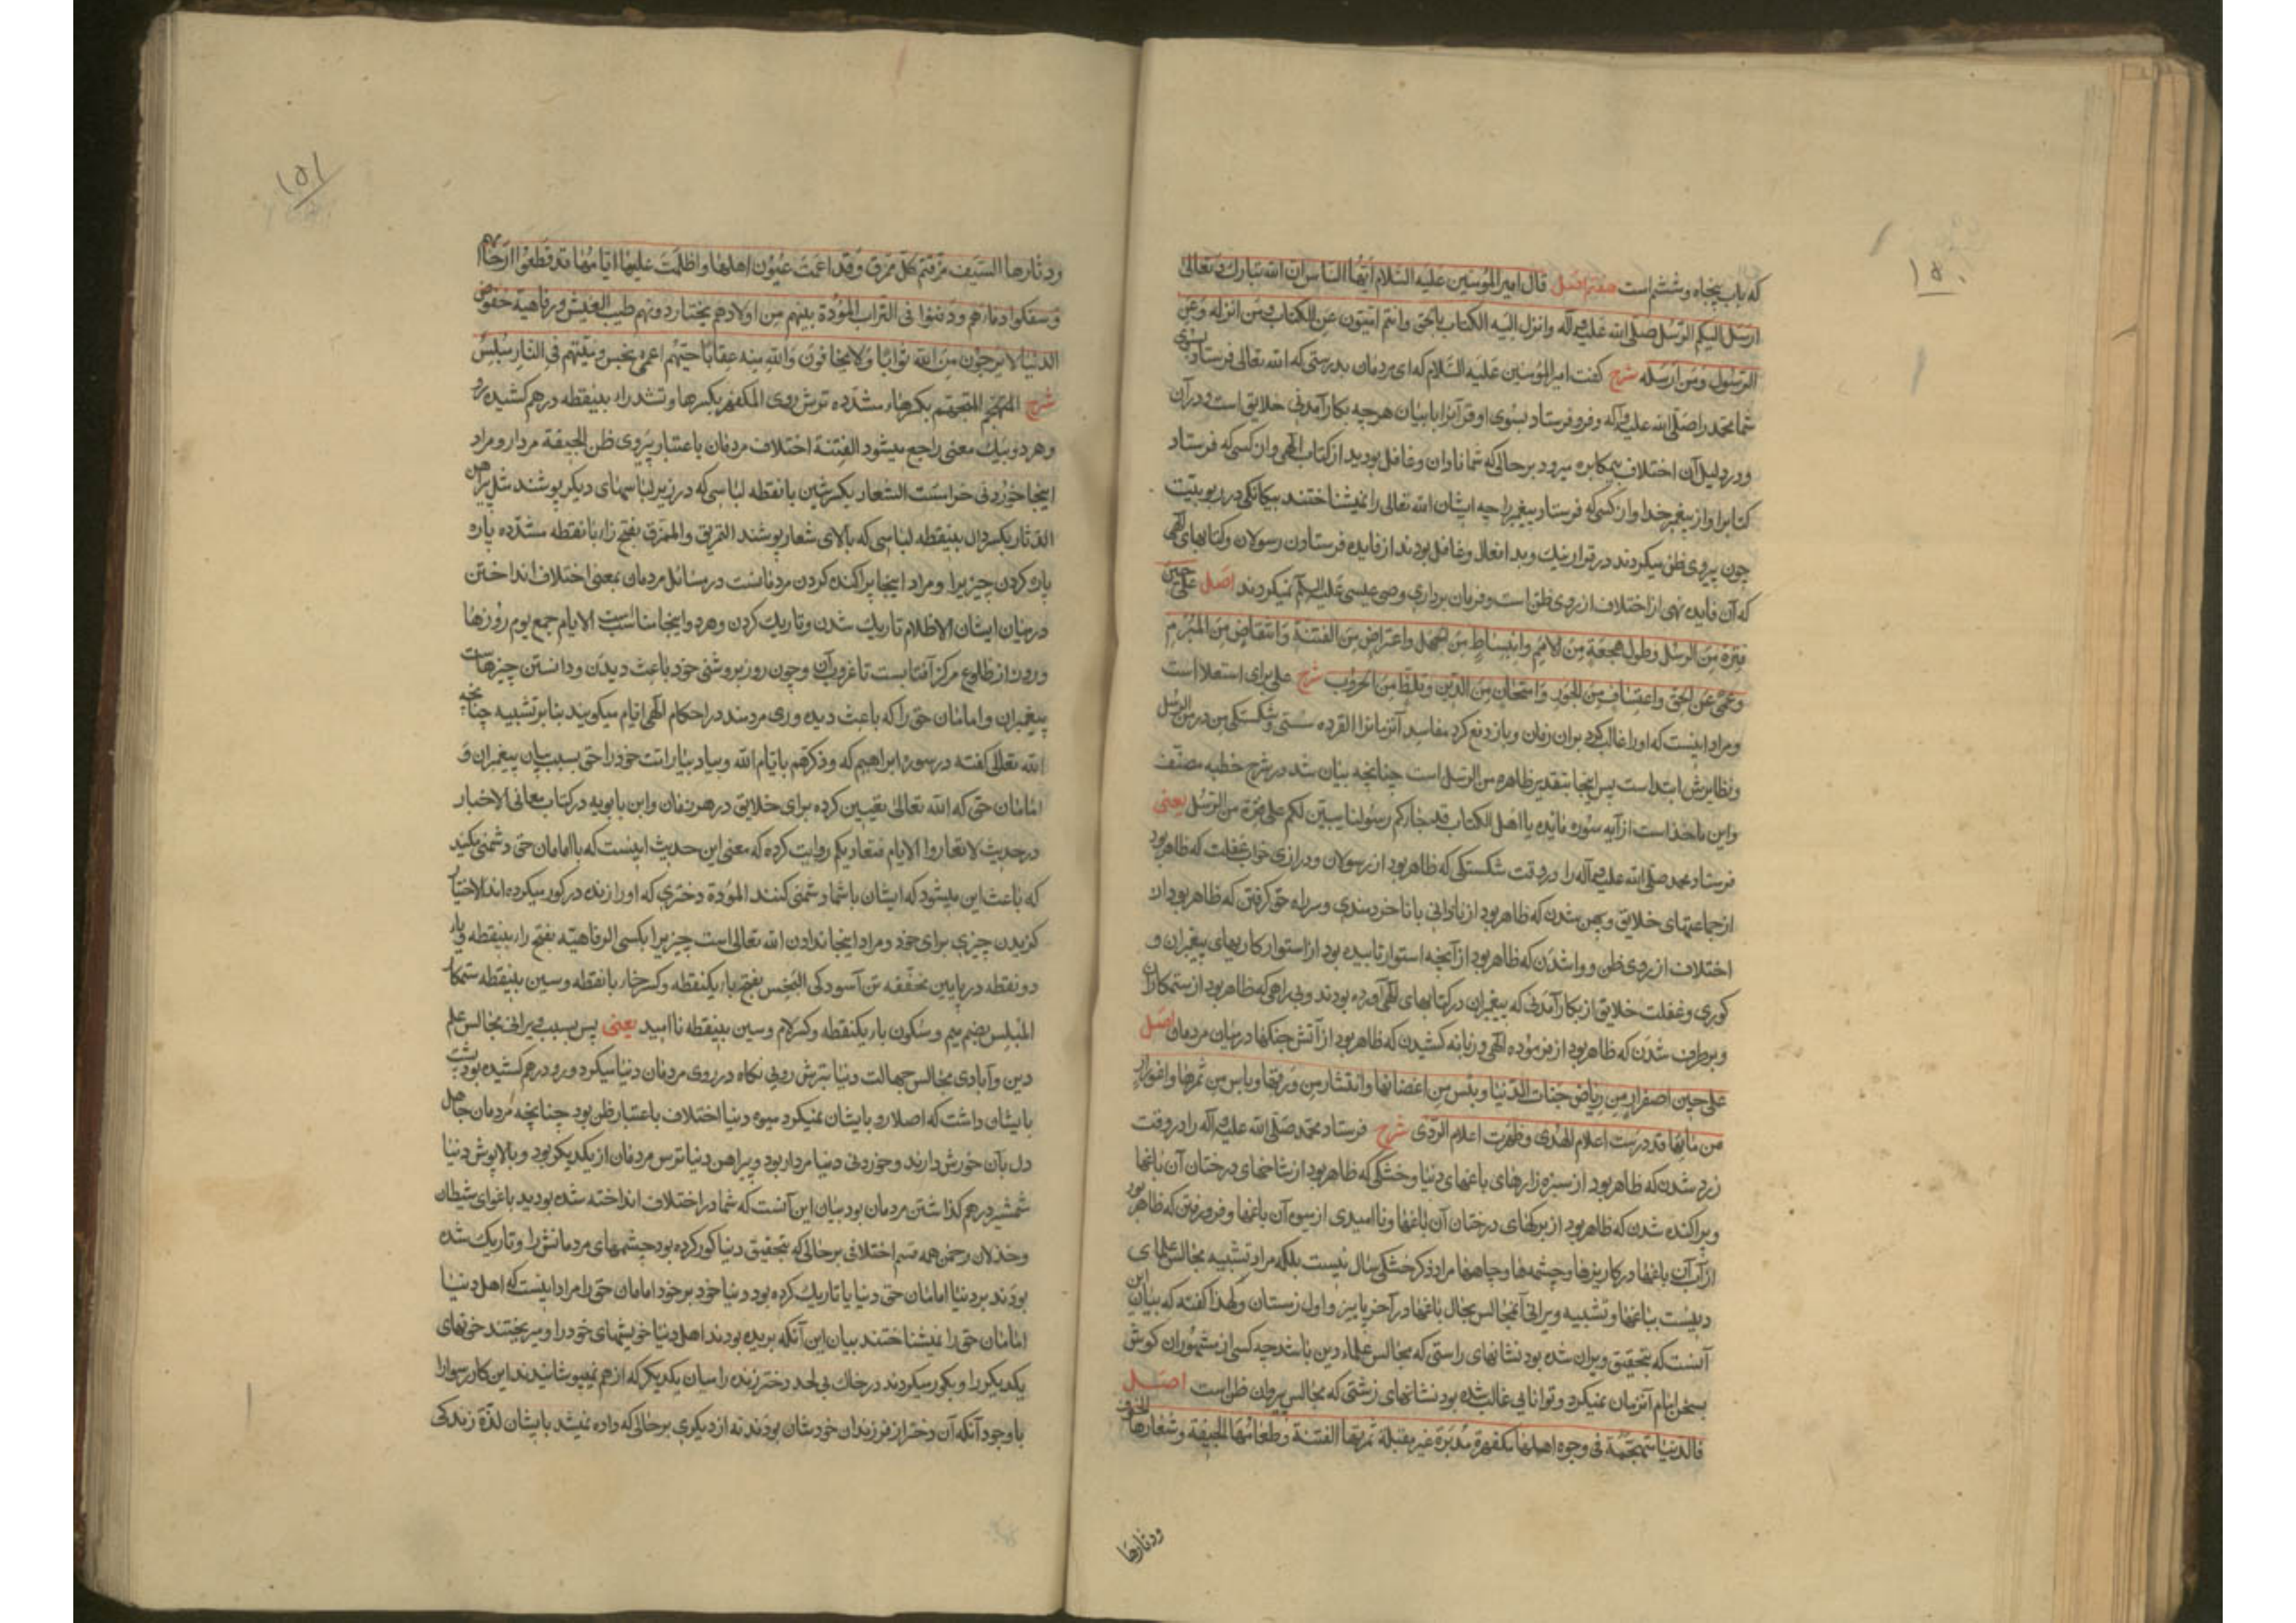 ۱۵۰
که باب پنجاه و ششم است هفتم اصل قال امیر المؤمنین علیه السّلام ایّها النّاس انّ الله تبارک و تعالی
ارسل الیکم الرّسل صلّی الله علیه وآله وانزل الیه الکتاب بالحق وانتم امّیّون عن الکتاب ومن انزله وعن
الرّسول ومن ارسله شرح گفت امیر المؤمنین علیه السّلام که ای مردمان بدرستی که الله تعالی فرستاد بسوی
شما محمّد را صلّی الله علیه وآله و فرو فرستاد بسوی او قرآنرا با بیان هرچه بکار آمدنی خلایق است و در آن
و در دلیل آن اختلاف بیمکابره میرود بر حالی که شما نادان و غافل بودید از کتاب الهی و از کسی که فرستاد
کتابرا و از پیغمبر خدا و از کسی که فرستاد پیغمبر را چه ایشان الله تعالی را نمیشناختند بیگانگی در ربوبیّت
چون پیروی ظن میکردند در قرار نیک و بد افعال و غافل بودند از فایده فرستادن رسولان و کتابهای الهی
که آن فایده نهی از اختلاف از روی ظن است و فرمان برداری وصی عیسی علیه السلم نمیکردند اصل علی حین
فترة من الرسل وطول هجعة من الامم وانبساط من الجهل واعتراض من الفتنة وانتقاض من المبرم
وعمی عن الحق واعتساف من الجور وامتحاق من الدّین وتلظّ من الحروب شرح علی برای استعلا است
و مراد اینست که او را غالب کرد بر آن زمان و باز دفع کرد مفاسد آنزمانرا الفتره سستی و شکستگی من در من الرسل
و نظایرش ابتدا است پس اینجا بتقدیر ظاهره من الرّسل است چنانچه بیان شد در شرح خطبه مصنّف
و این ماخذ است از آیه سوره مائده یا اهل الکتاب قد جاءکم رسولنا یبیّن لکم علی فترة من الرّسل یعنی
فرستاد محمد صلّی الله علیه وآله را در وقت شکستگی که ظاهر بود از رسولان و درازی خواب غفلت که ظاهر بود
از جماعتهای خلایق و پهن شدن که ظاهر بود از نادانی یا ناخردمندی و سر راه حق گرفتن که ظاهر بود از
اختلاف از روی ظن و واشدن که ظاهر بود از آنچه استوار تابیده بود از استوار کاریهای پیغمبران و
کوری و غفلت خلایق از بکار آمدنی که پیغمبران در کتابهای الهی آورده بودند و بی راهی که ظاهر بود از ستمکاران
و برطرف شدن که ظاهر بود از فرموده الهی و زبانه کشیدن که ظاهر بود از آتش جنگها در میان مردمان اصل
علی حین اصفرار من ریاض جنّات الدّنیا ویبس من اغصانها وانتشار من ورقها ویاس من ثمرها واغورار
من مائها قد درست اعلام الهدی وظهرت اعلام الرّدی شرح فرستاد محمّد صلّی الله علیه وآله را در وقت
زرد شدن که ظاهر بود از سبزه زارهای باغهای دنیا و خشکی که ظاهر بود از شاخهای درختان آن باغها
و پراکنده شدن که ظاهر بود از برکهای درختان آن باغها و نا امیدی از میوه آن باغها و فرو رفتن که ظاهر بود
از آب آن باغها در کاریزها و چشمه‌ها و چاهها مراد ذکر خشکی سال نیست بلکه مراد تشبیه مجالس علمای
دینست بباغها و تشبیه ویرانی آنمجالس بحال باغها در آخر پاییز و اول زمستان و لهذا گفته که بیان این
آنست که بتحقیق ویران شده بود نشانهای راستی که مجالس علماء دین باشد چه کسی از مشهوران گوش
بسخن امام آنزمان نمیکرد و توانایی غالب شده بود نشانهای زشتی که مجالس پیروان ظن است اصل
فالدّنیا متهجّمة فی وجوه اهلها مکفهرّة مدبرة غیر مقبلة ثمرتها الفتنة وطعامها الجیفة وشعارها الخوف
ودثارها
۱۵۱
ودثارها السّیف مزّقتم کلّ ممزّق وقد اعمت عیون اهلها واظلمت علیها ایّامها قد قطعوا ارحامهم
وسفکوا دماءهم ودفنوا فی التراب المؤدة بینهم من اولادهم یختار دونهم طیب العیش ورفاهیة خفوض
الدنیا لا یرجون من الله ثوابًا ولا یخافون والله منه عقابًا حیّهم اعمی بخس ومیّتهم فی النّار مبلس
شرح المتهجّم بکسر هاء مشدّده ترش روی المکفهر بکسر ها و تشدید راء بینقطه درهم کشیده رو
و هر دو بیک معنی راجع میشود الفتنة اختلاف مردمان باعتبار پیروی ظن الجیفة مردار و مراد
اینجا خوردنی حرامست الشعار بکسر شین با نقطه لباسی که در زیر لباسهای دیگر پوشند مثل پیراهن
الدّثار بکسر دال بینقطه لباسی که بالای شعار پوشند التمزیق والممزّق بفتح زاء با نقطه مشدّده پاره
پاره کردن چیزیرا و مراد اینجا پراکنده کردن مردمانست در مسائل مردمان بمعنی اختلاف انداختن
در میان ایشان الاظلام تاریک شدن و تاریک کردن و هر دو اینجا مناسبست الایام جمع یوم روزها
و روز از طلوع مرکز آفتابست تا غروب آن و چون روز بروشنی خود باعث دیدن و دانستن چیزهاست
پیغمبران و امامان حق را که باعث دیده وری مردمند در احکام الهی ایّام میگویند بنا بر تشبیه چنانچه
الله تعالی گفته در سوره ابراهیم که وذکّرهم بایّام الله و بیاد بیار امّت خود را حق بسبب بیان پیغمبران و
امامان حق که الله تعالی تعیین کرده برای خلایق در هر زمان و ابن بابویه در کتاب معانی الاخبار
در حدیث لا تعادوا الایام فتعادیکم روایت کرده که معنی این حدیث اینست که با امامان حق دشمنی مکنید
که باعث این میشود که ایشان با شما دشمنی کنند المؤدة دختری که او را زنده در گور میکرده اند الاختیار
گزیدن چیزی برای خود و مراد اینجا ندادن الله تعالی است چیزیرا بکسی الرفاهیّه بفتح راء بینقطه و یاء
دو نقطه در پایین مخفّفه تن آسودگی البخس بفتح باء یکنقطه و کسر خاء با نقطه و سین بینقطه ستمکار
المبلس بضم میم و سکون باء یکنقطه و کسر لام و سین بینقطه نا امید یعنی پس بسبب ویرانی مجالس علم
دین و آبادی مجالس جهالت دنیا بترش رویی نگاه در روی مردمان دنیا میکرد و رو درهم کشیده بود پشت
بایشان داشت که اصلا رو بایشان نمیکرد میوه دنیا اختلاف باعتبار ظن بود چنانچه مردمان جاهل
دل بآن خوش دارند و خوردنی دنیا مردار بود و پیراهن دنیا ترس مردمان از یکدیگر بود و بالاپوش دنیا
شمشیر درهم گذاشتن مردمان بود بیان این آنست که شما در اختلاف انداخته شده بودید باغوای شیطان
و خذلان رحمن همه قسم اختلافی بر حالی که بتحقیق دنیا کور کرده بود چشمهای مردمانش را و تاریک شده
بودند بر دنیا امامان حق دنیا یا تاریک کرده بود دنیا خود بر خود امامان حق را مراد اینست که اهل دنیا
امامان حق را نمیشناختند بیان این آنکه بریده بودند اهل دنیا خویشهای خود را و میریختند خونهای
یکدیگر را و بگور میکردند در خاک بی لحد دختر زنده را میان یکدیگر که از هم نمیپوشانیدند این کار رسوا را
با وجود آنکه آن دختر از فرزندان خودشان بودند نه از دیگری بر حالی که داده نمیشد بایشان لذّة زندگی